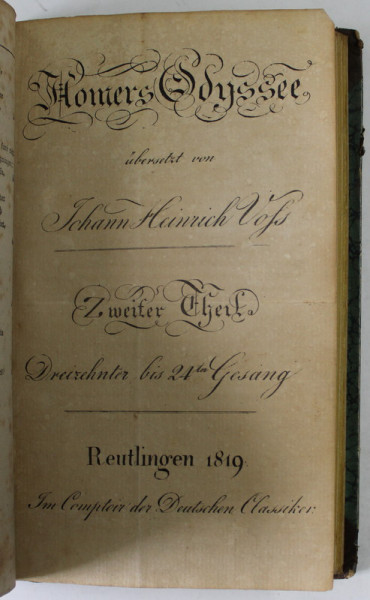 Homers Odyssee
übersetzt von
Johann Heinrich Voſs
Zweiter Theil.
Dreizehnter bis 24ter Gesang
Reutlingen 1819
Im Comptoir der Deutschen Classiker.